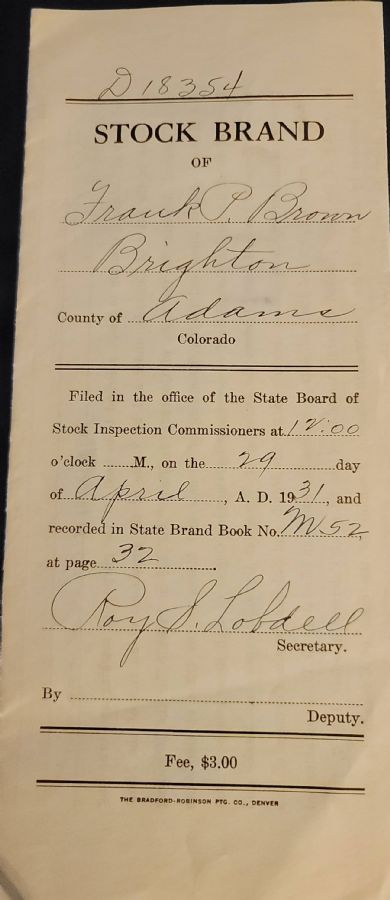 D 18354
STOCK BRAND
OF
Frank P. Brown
Brighton
County of Adams
Colorado
Filed in the office of the State Board of
Stock Inspection Commissioners at 12:00
o'clock ......M., on the 29 day
of April, A. D. 1931, and
recorded in State Brand Book No. M 52,
at page 32
Roy S. Lobdell
Secretary.
By
Deputy.
Fee, $3.00
THE BRADFORD-ROBINSON PTG. CO., DENVER